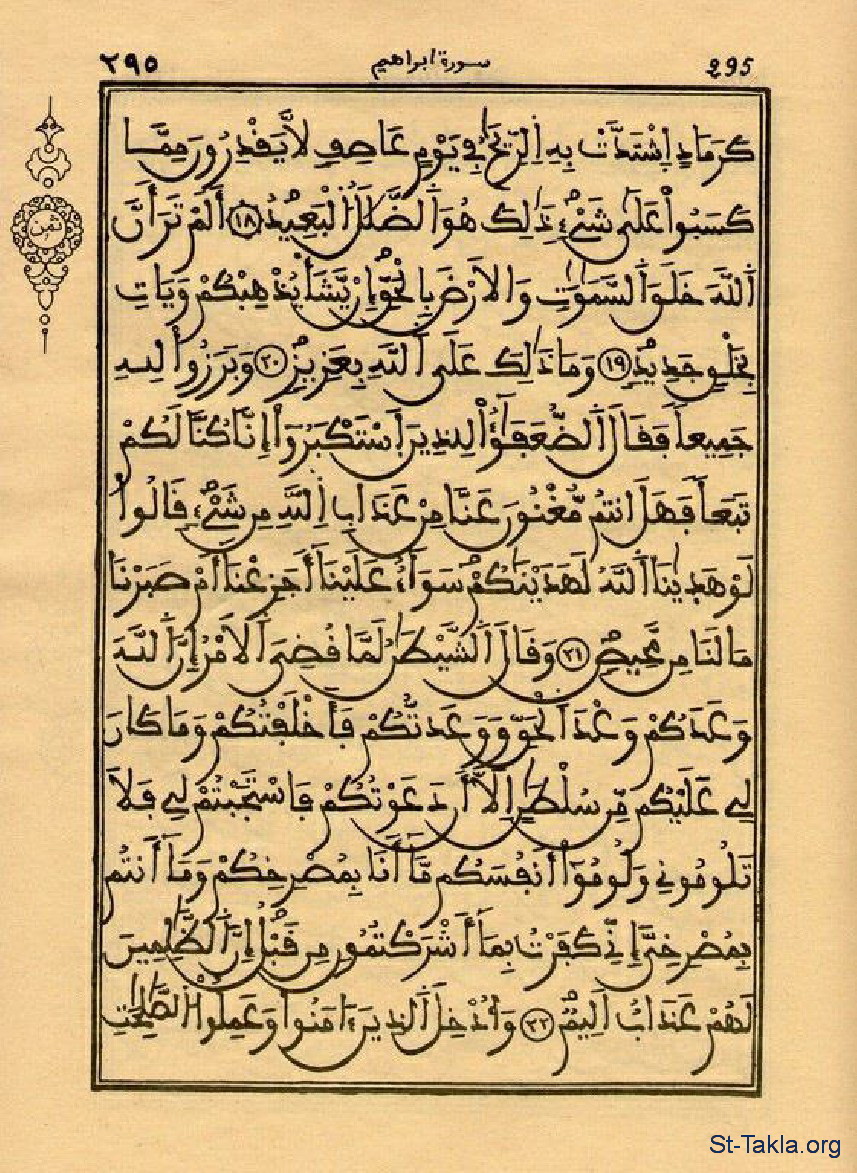 ٢٩٥ سورة ابراهيم 295
كَرَمَادٍ اِشْتَدَّتْ بِهِ اِلرِّيَٰحُ فِي يَوْمٍ عَاصِفٍ لَّا يَقْدِرُونَ مِمَّا
كَسَبُواْ عَلَىٰ شَيْءٍ ذَٰلِكَ هُوَ اَلضَّلَٰلُ اُلْبَعِيدُ ١٨ أَلَمْ تَرَ أَنَّ
ثمن
اَللَّهَ خَلَقَ اَلسَّمَٰوَٰتِ وَالَارْضَ بِالْحَقِّ إِنْ يَّشَأْ يُذْهِبْكُمْ وَيَاتِ
بِخَلْقٍ جَدِيدٍ ١٩ وَمَا ذَٰلِكَ عَلَى اَللَّهِ بِعَزِيزٍ ٢٠ وَبَرَزُواْ لِلهِ
جَمِيعاً فَقَالَ اَلضُّعَفَٰٓؤُاْ لِلذِينَ اَسْتَكْبَرُوٓاْ إِنَّا كُنَّا لَكُمْ
تَبَعاً فَهَلَ اَنتُم مُّغْنُونَ عَنَّا مِنْ عَذَابِ اِللَّهِ مِن شَيْءٍ قَالُواْ
لَوْ هَدَىٰنَا اَللَّهُ لَهَدَيْنَٰكُمْ سَوَآءٌ عَلَيْنَآ أَجَزِعْنَآ أَمْ صَبَرْنَا
مَا لَنَا مِن مَّحِيصٍ ٢١ وَقَالَ اَلشَّيْطَٰنُ لَمَّا قُضِيَ اَلَامْرُ إِنَّ اَللَّهَ
وَعَدَكُمْ وَعْدَ اَلْحَقِّ وَوَعَدتُّكُمْ فَأَخْلَفْتُكُمْ وَمَا كَانَ
لِي عَلَيْكُم مِّن سُلْطَٰنٍ اِلَّآ أَن دَعَوْتُكُمْ فَاسْتَجَبْتُمْ لِي فَلَا
تَلُومُونِي وَلُومُوٓاْ أَنفُسَكُم مَّآ أَنَا بِمُصْرِخِكُمْ وَمَآ أَنتُم
بِمُصْرِخِيَّ إِنِّي كَفَرْتُ بِمَآ أَشْرَكْتُمُونِ مِن قَبْلُ إِنَّ اَلظَّٰلِمِينَ
لَهُمْ عَذَابٌ اَلِيمٌ ٢٢ وَأُدْخِلَ اَلذِينَ ءَامَنُواْ وَعَمِلُواْ اُلصَّٰلِحَٰتِ
St-Takla.org